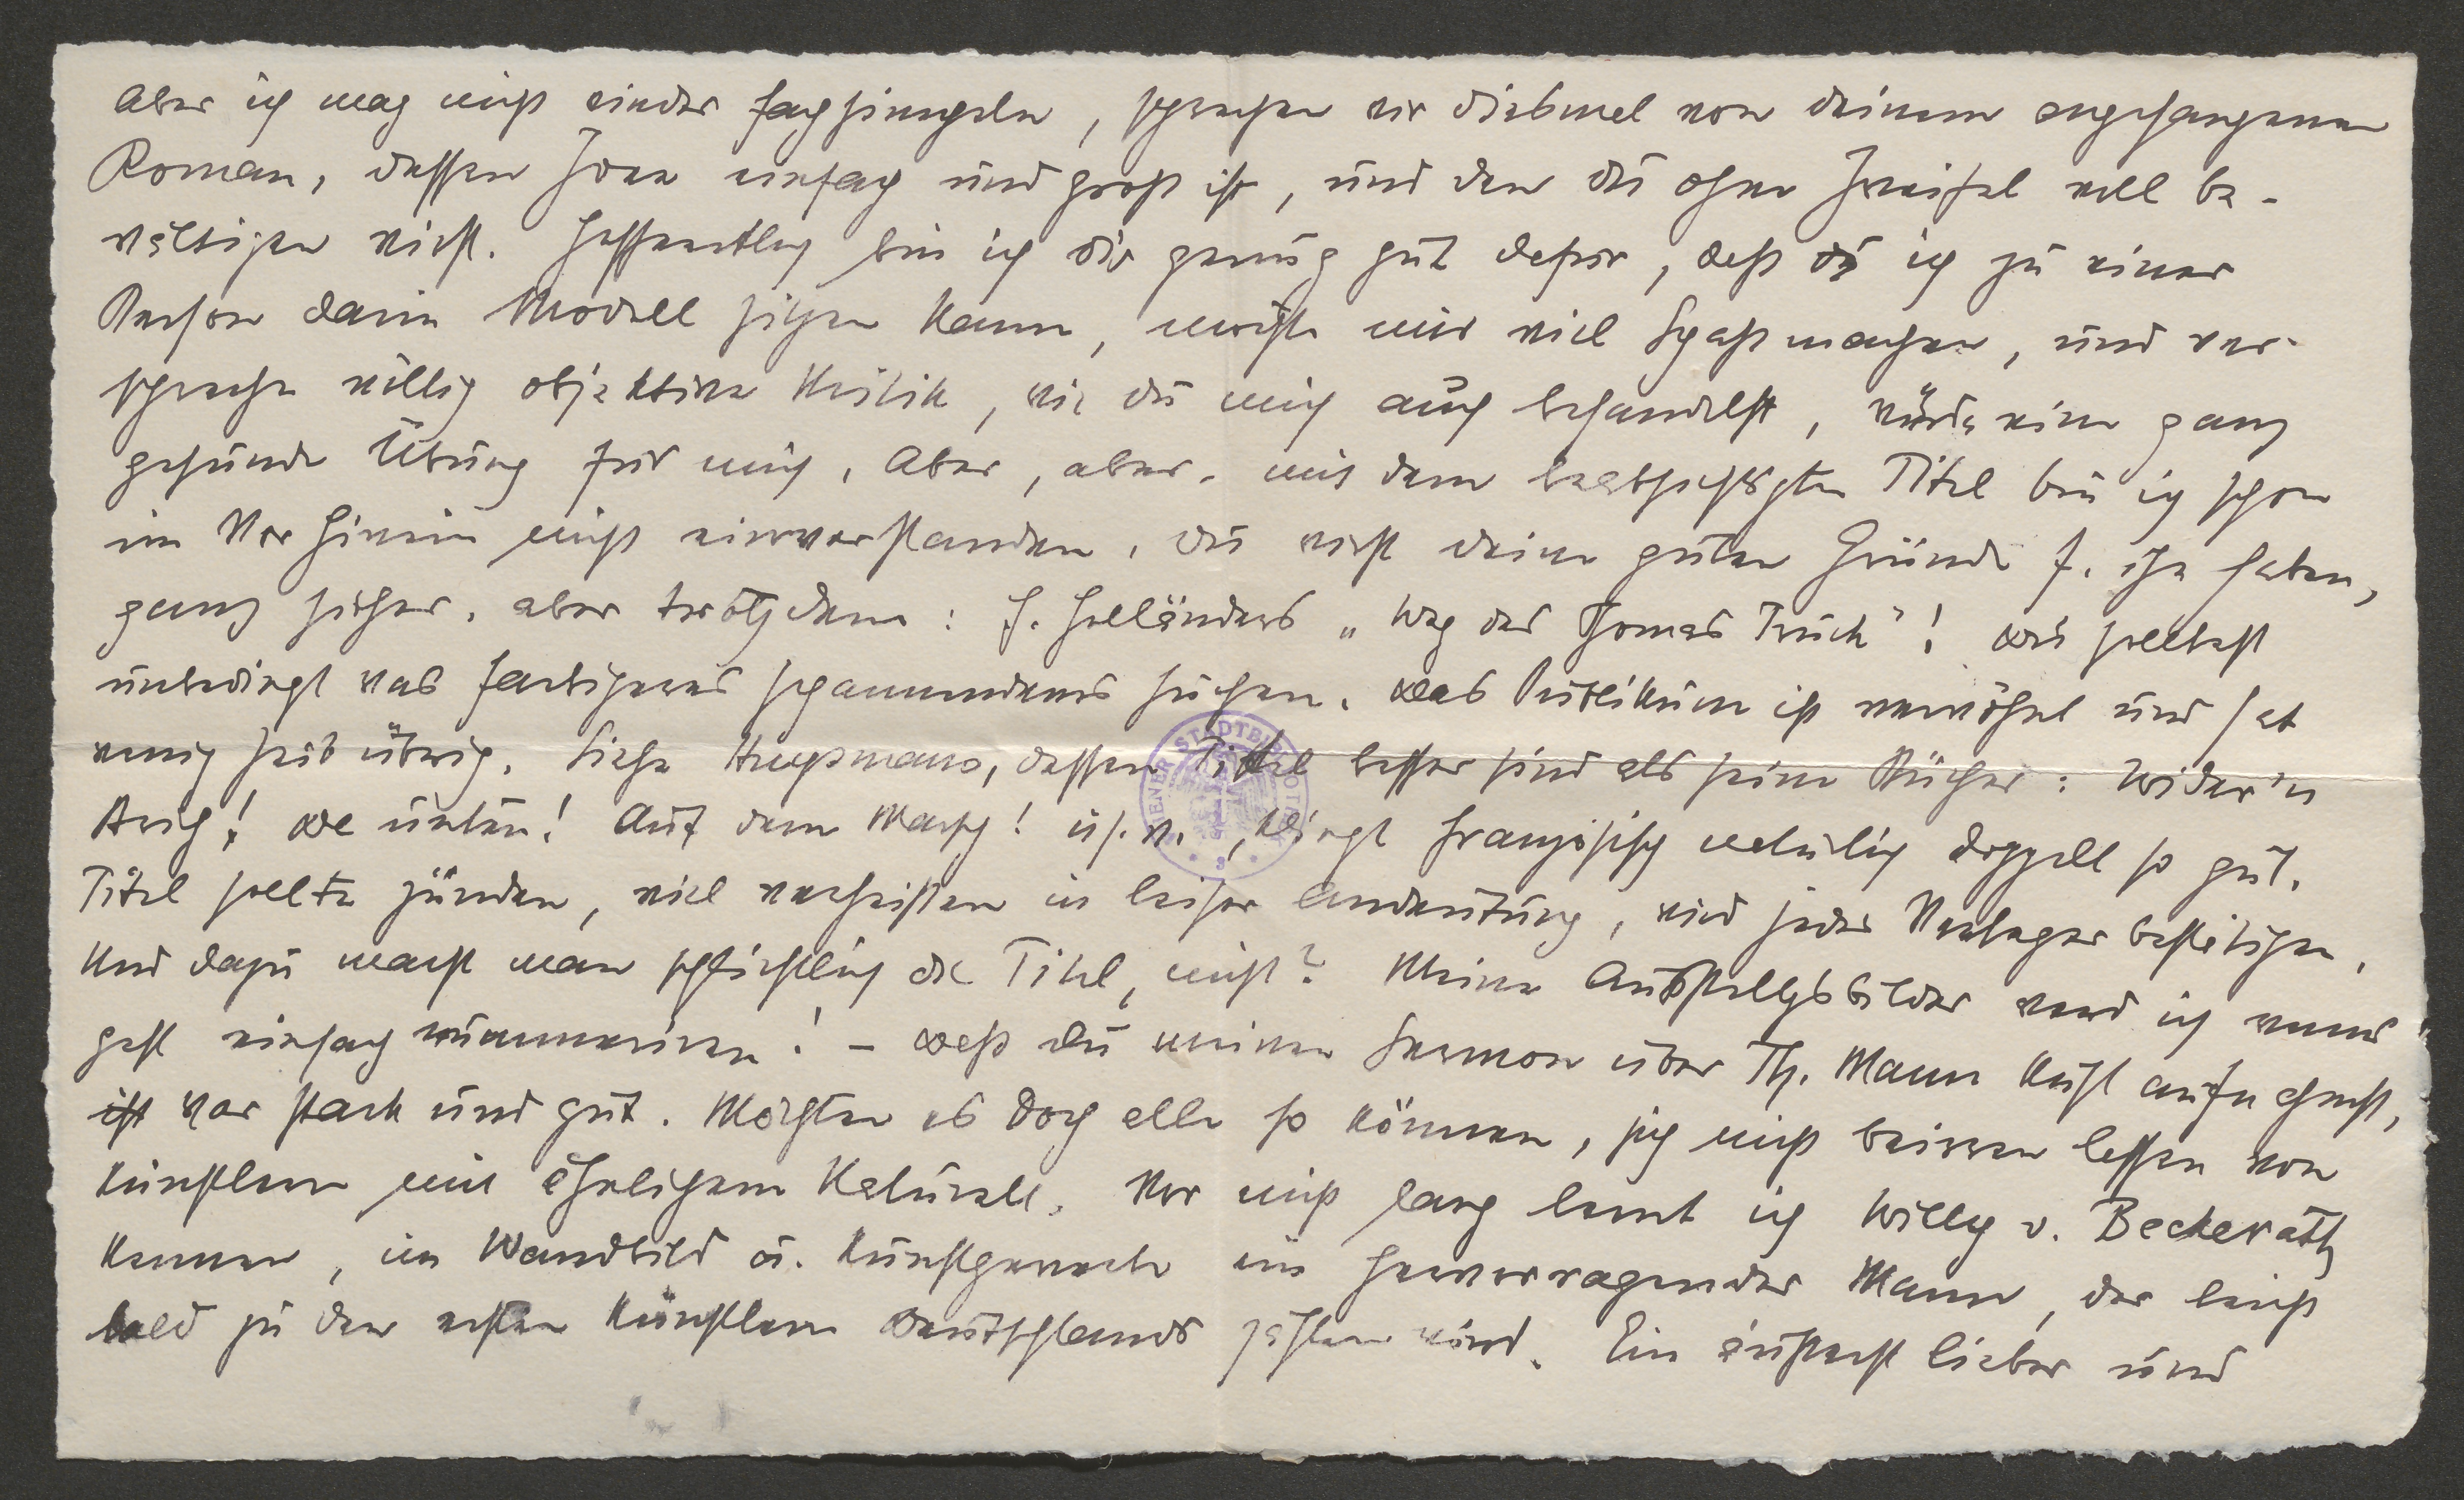 Aber ich mag nicht wieder fachsimpeln, sprechen wir diesmal von deinem angefangenen
Roman, dessen Idee einfach und gross ist, und den du ohne Zweifel voll be-
wältigen wirst. Hoffentlich bin ich dir genug gut dafür, dass ich zu einer
Person darin Modell sitzen kann, möchte mir viel Spass machen, und ver-
spreche völlig objektive Kritik, wie du mich auch behandelst, würde eine ganz
gesunde Übung für mich. Aber, aber. mit dem beabsichtigten Titel bin ich schon
im Vorhinein nicht einverstanden. Du wirst deine guten Gründe f. ihn haben,
ganz sicher. aber trotzdem: F. Holländers „Weg des Thomas Truck"! Du solltest
unbedingt was farbigeres spannenderes suchen. Das Publikum ist verwöhnt und hat
wenig Zeit übrig. Siehe Huysmans, dessen Titel besser sind als seine Bücher: Wider'n
Strich! Da unten! Auf dem Marsch! u.s.w., klingt französisch natürlich doppelt so gut.
Titel sollte zünden, viel verheissen in leiser Andeutung, wird jeder Verleger bestätigen.
Und dazu macht man schliesslich die Titel, nicht? Meine Ausstellgsbilder werd ich nächst
einfach nummerieren! – Dass du meinen Sermon über Th. Mann kühl aufnahmst,
war stark und gut. Möchten es doch alle so können, sich nicht beirren lassen von
Künstlern mit ähnlichem Naturell. Vor nicht lang lernt ich Willy v. Beckerath
kennen, im Wandbild u. Kunstgewerbe ein hervorragender Mann, der leicht
bald zu den ersten Künstlern Deutschlands zählen wird. Ein äusserst lieber und
WIENER STADTBIBLIOTHEK